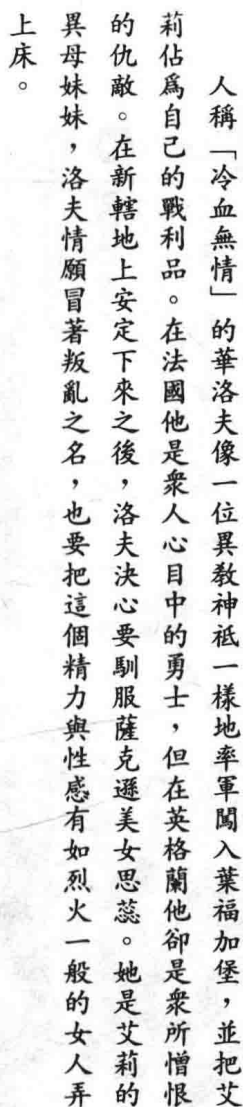 人稱「冷血無情」的華洛夫像一位異教神祇一樣地率軍闖入葉福加堡，並把艾
莉佔爲自己的戰利品。在法國他是衆人心目中的勇士，但在英格蘭他卻是衆所憎恨
的仇敵。在新轄地上安定下來之後，洛夫決心要馴服薩克遜美女思蕊。她是艾莉的
異母妹妹，洛夫情願冒著叛亂之名，也要把這個精力與性感有如烈火一般的女人弄
上床。